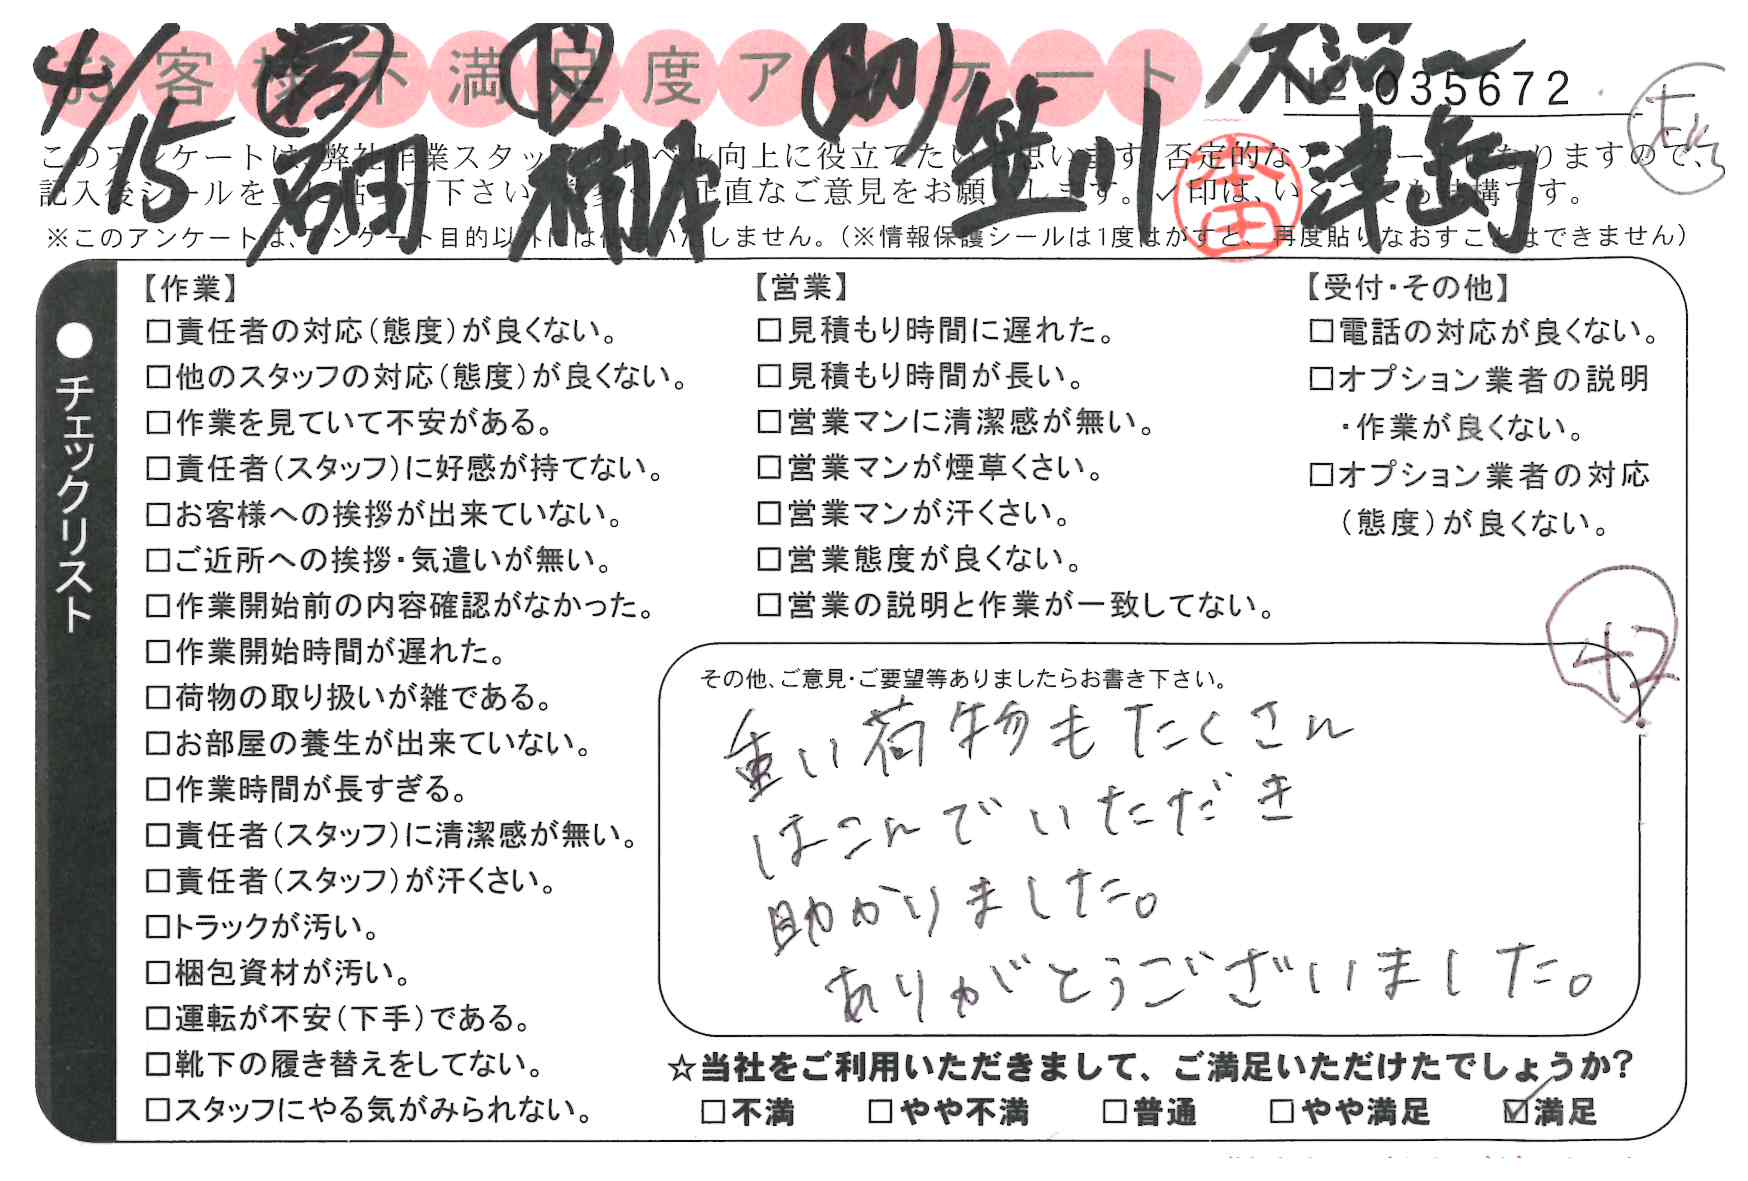 お客様不満足度アンケート
4/15 (営) (ド) (助)
石田 笠川 津島
№ 035672
本田
※このアンケートは、アンケート目的以外には使用いたしません。(※情報保護シールは1度はがすと、再度貼りなおすことはできません)
チェックリスト
【作業】
□責任者の対応(態度)が良くない。
□他のスタッフの対応(態度)が良くない。
□作業を見ていて不安がある。
□責任者(スタッフ)に好感が持てない。
□お客様への挨拶が出来ていない。
□ご近所への挨拶・気遣いが無い。
□作業開始前の内容確認がなかった。
□作業開始時間が遅れた。
□荷物の取り扱いが雑である。
□お部屋の養生が出来ていない。
□作業時間が長すぎる。
□責任者(スタッフ)に清潔感が無い。
□責任者(スタッフ)が汗くさい。
□トラックが汚い。
□梱包資材が汚い。
□運転が不安(下手)である。
□靴下の履き替えをしてない。
□スタッフにやる気がみられない。
【営業】
□見積もり時間に遅れた。
□見積もり時間が長い。
□営業マンに清潔感が無い。
□営業マンが煙草くさい。
□営業マンが汗くさい。
□営業態度が良くない。
□営業の説明と作業が一致してない。
【受付・その他】
□電話の対応が良くない。
□オプション業者の説明
・作業が良くない。
□オプション業者の対応
(態度)が良くない。
42
その他、ご意見・ご要望等ありましたらお書き下さい。
重い荷物もたくさん
はこんでいただき
助かりました。
ありがとうございました。
☆当社をご利用いただきまして、ご満足いただけたでしょうか?
□不満 □やや不満 □普通 □やや満足 ☑満足